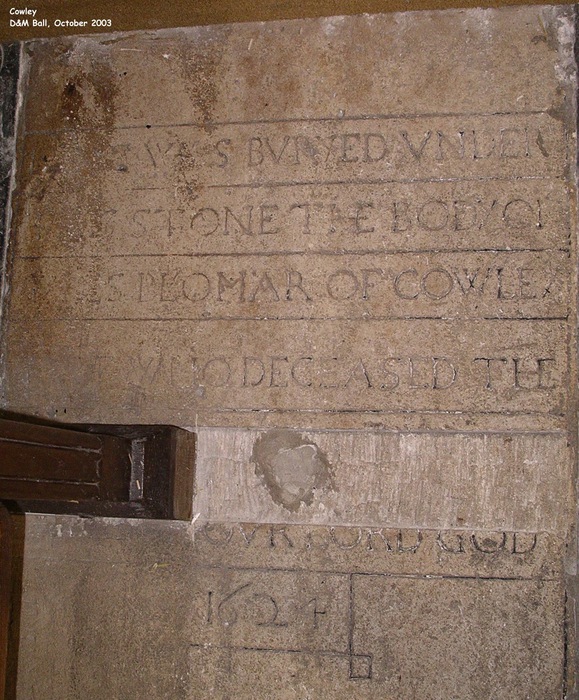 Cowley
D&M Ball, October 2003
WAS BVRYED VNDER
STONE THE BODY OF
PLOMAR OF COWLEY
WHO DECEASED THE
OVR LORD GOD
1624